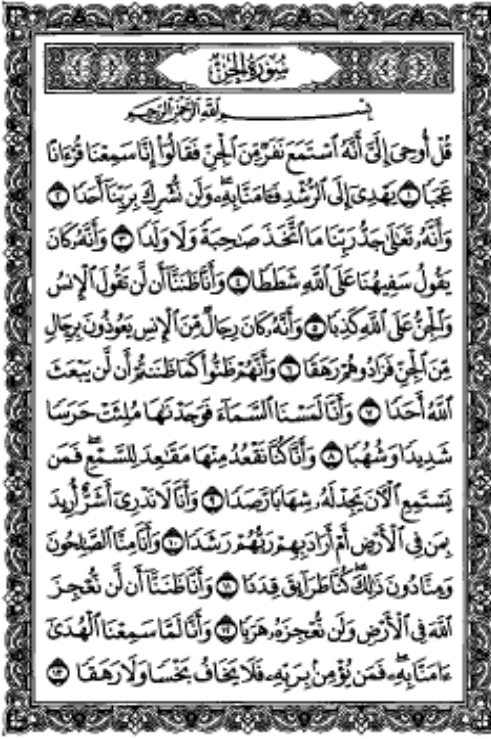 سُورَةُ الجِنّ
بِسْمِ ٱللَّهِ ٱلرَّحْمَٰنِ ٱلرَّحِيمِ
قُلْ أُوحِىَ إِلَىَّ أَنَّهُ ٱسْتَمَعَ نَفَرٌ مِّنَ ٱلْجِنِّ فَقَالُوٓا۟ إِنَّا سَمِعْنَا قُرْءَانًا
عَجَبًا ١ يَهْدِىٓ إِلَى ٱلرُّشْدِ فَـَٔامَنَّا بِهِۦ وَلَن نُّشْرِكَ بِرَبِّنَآ أَحَدًا ٢
وَأَنَّهُۥ تَعَٰلَىٰ جَدُّ رَبِّنَا مَا ٱتَّخَذَ صَٰحِبَةً وَلَا وَلَدًا ٣ وَأَنَّهُۥ كَانَ
يَقُولُ سَفِيهُنَا عَلَى ٱللَّهِ شَطَطًا ٤ وَأَنَّا ظَنَنَّآ أَن لَّن تَقُولَ ٱلْإِنسُ
وَٱلْجِنُّ عَلَى ٱللَّهِ كَذِبًا ٥ وَأَنَّهُۥ كَانَ رِجَالٌ مِّنَ ٱلْإِنسِ يَعُوذُونَ بِرِجَالٍ
مِّنَ ٱلْجِنِّ فَزَادُوهُمْ رَهَقًا ٦ وَأَنَّهُمْ ظَنُّوا۟ كَمَا ظَنَنتُمْ أَن لَّن يَبْعَثَ
ٱللَّهُ أَحَدًا ٧ وَأَنَّا لَمَسْنَا ٱلسَّمَآءَ فَوَجَدْنَٰهَا مُلِئَتْ حَرَسًا
شَدِيدًا وَشُهُبًا ٨ وَأَنَّا كُنَّا نَقْعُدُ مِنْهَا مَقَٰعِدَ لِلسَّمْعِ ۖ فَمَن
يَسْتَمِعِ ٱلْـَٔانَ يَجِدْ لَهُۥ شِهَابًا رَّصَدًا ٩ وَأَنَّا لَا نَدْرِىٓ أَشَرٌّ أُرِيدَ
بِمَن فِى ٱلْأَرْضِ أَمْ أَرَادَ بِهِمْ رَبُّهُمْ رَشَدًا ١٠ وَأَنَّا مِنَّا ٱلصَّٰلِحُونَ
وَمِنَّا دُونَ ذَٰلِكَ ۖ كُنَّا طَرَآئِقَ قِدَدًا ١١ وَأَنَّا ظَنَنَّآ أَن لَّن نُّعْجِزَ
ٱللَّهَ فِى ٱلْأَرْضِ وَلَن نُّعْجِزَهُۥ هَرَبًا ١٢ وَأَنَّا لَمَّا سَمِعْنَا ٱلْهُدَىٰٓ
ءَامَنَّا بِهِۦ ۖ فَمَن يُؤْمِنۢ بِرَبِّهِۦ فَلَا يَخَافُ بَخْسًا وَلَا رَهَقًا ١٣